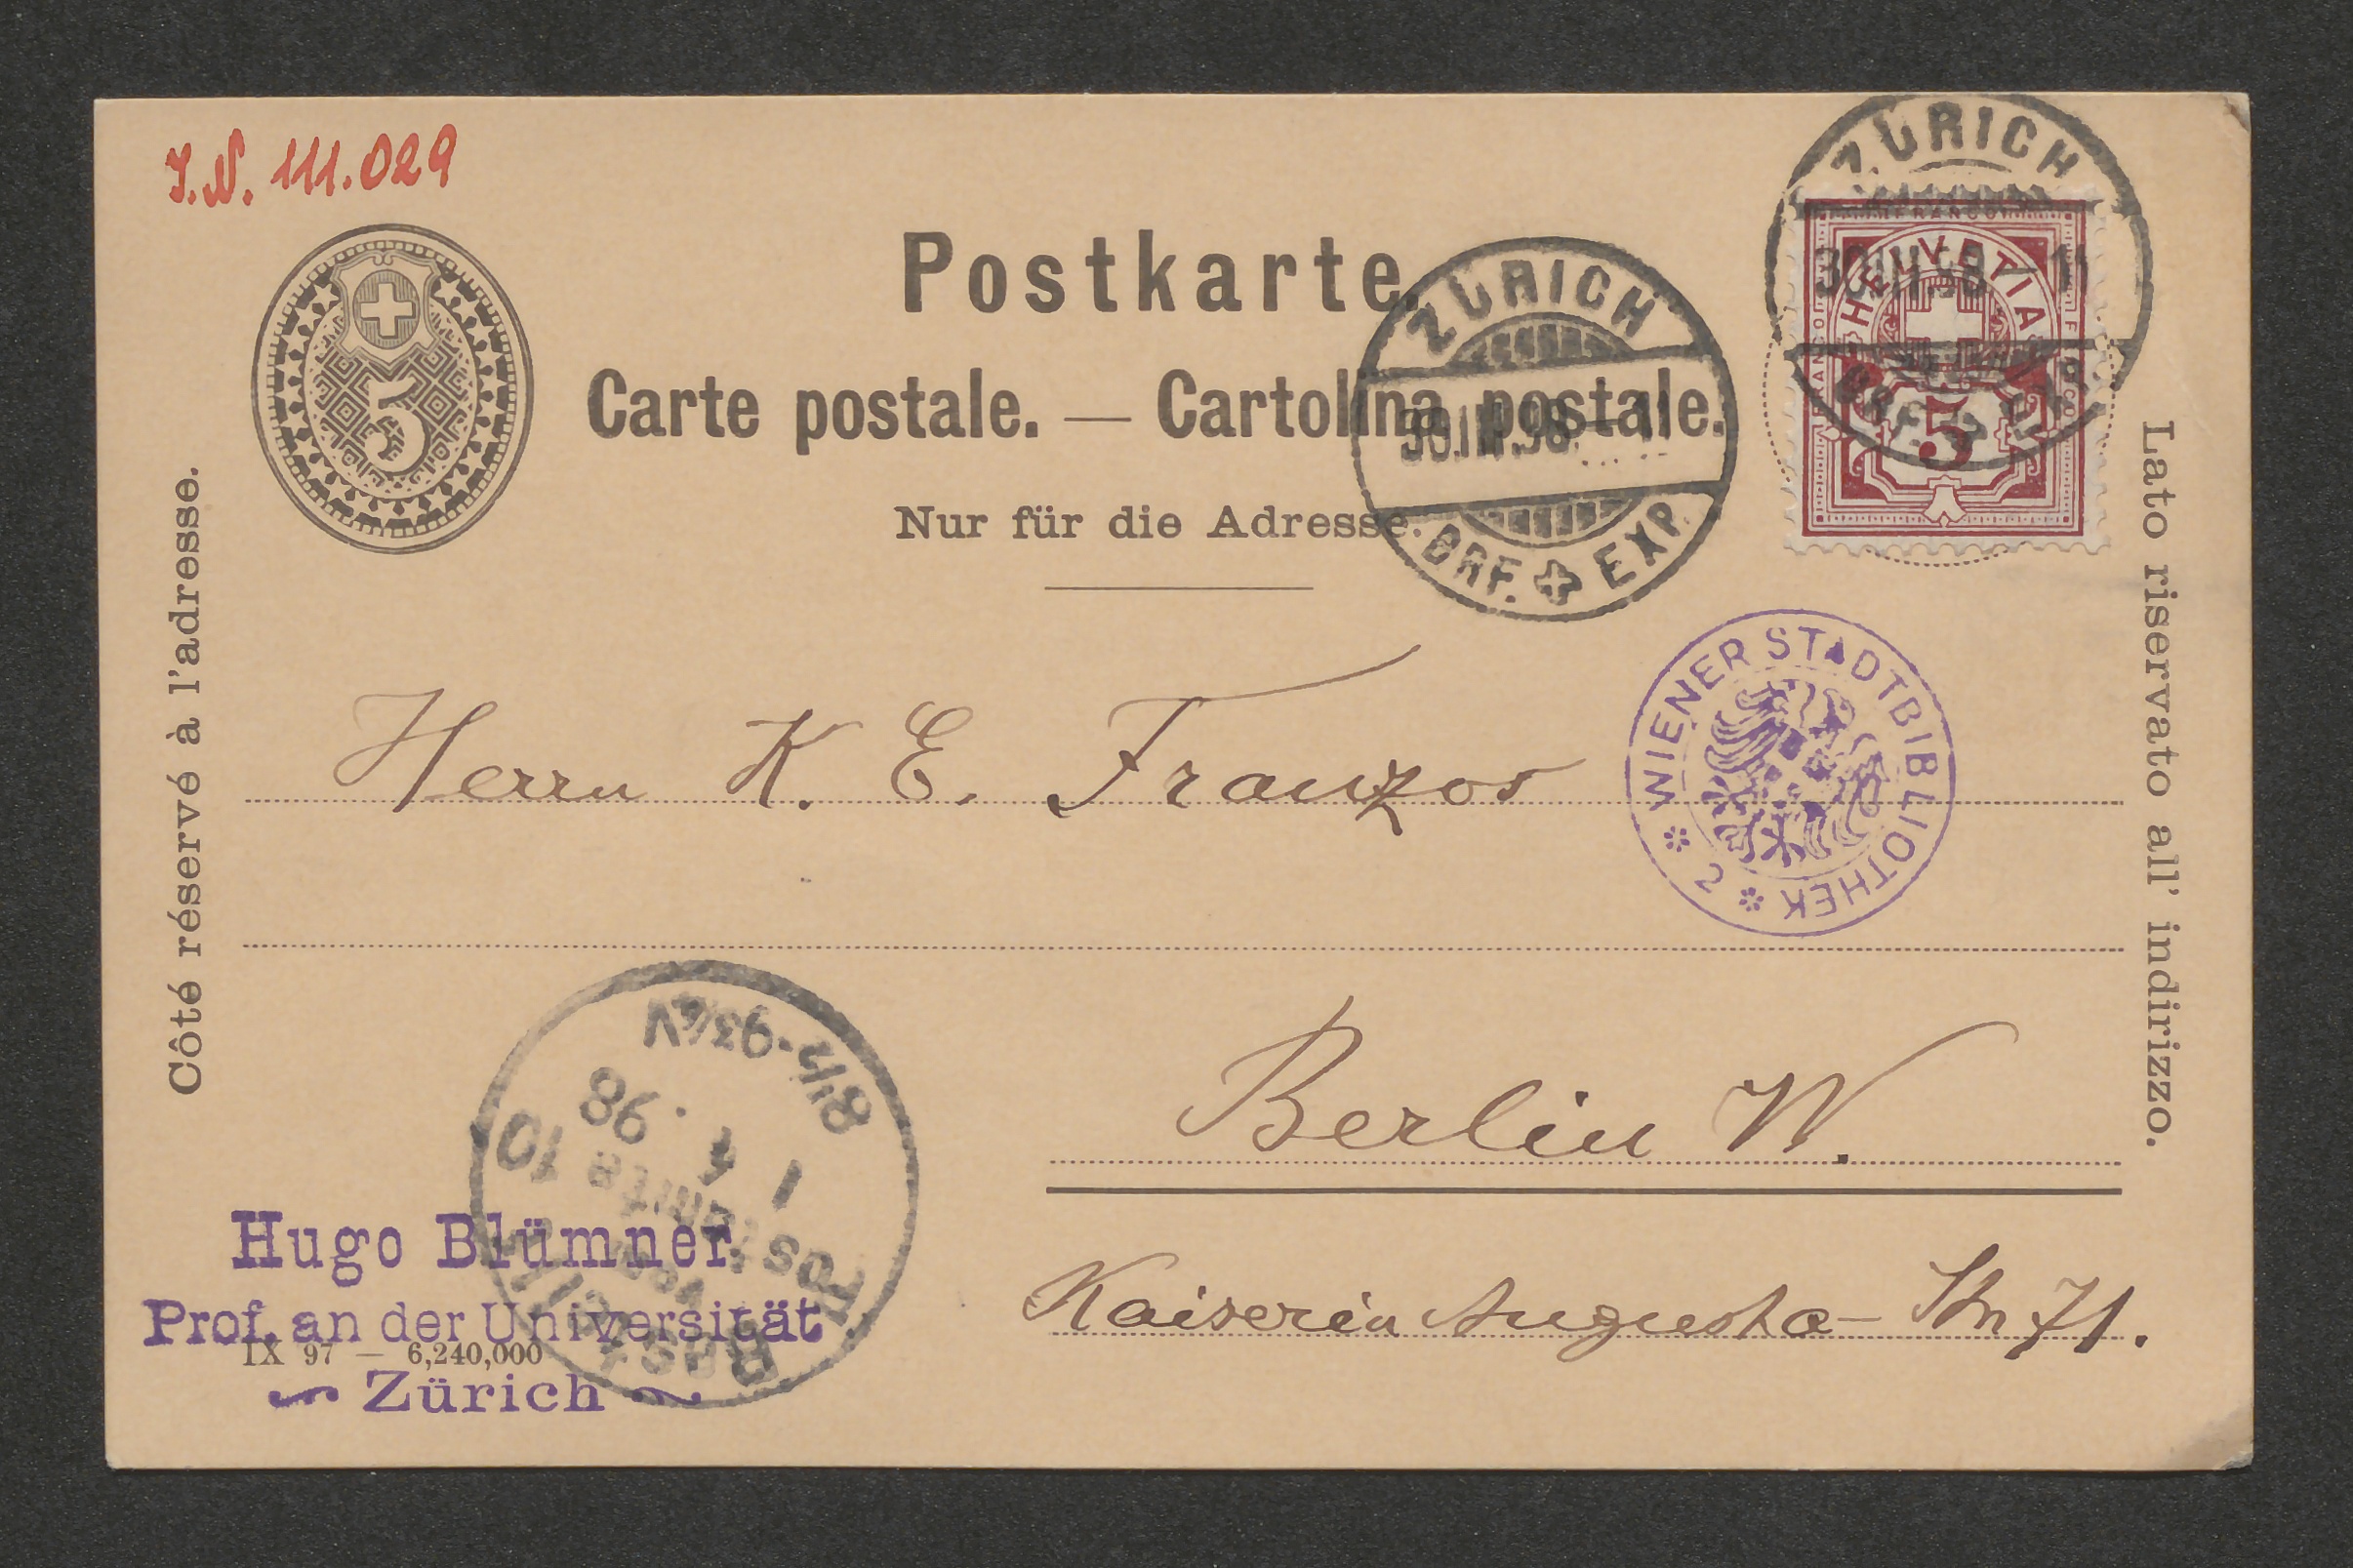 J.N. 111.029
5
Postkarte.
Carte postale. — Cartolina postale.
Nur für die Adresse.
Côté réservé à l'adresse.
Lato riservato all' indirizzo.
ZÜRICH
30.III.98.–11
BRF. EXP.
ZÜRICH
30.III.98.–11
BRF. EXP.
FRANCO
HELVETIA
FRANCO
FRANCO
5
WIENER STADTBIBLIOTHEK
* 2 *
Herrn K. E. Franzos
Berlin W.
Kaiserin Augusta-Str 71.
Bestellt
vom
Postamte 10
1 4.98
8½-9¾V
Hugo Blümner
Prof. an der Universität
Zürich
IX 97 — 6,240,000